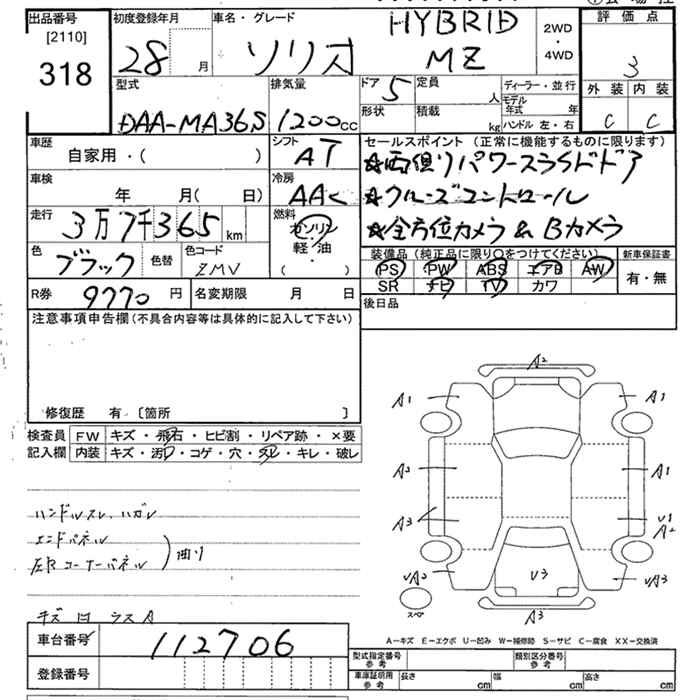 出品番号
[2110]
318
初度登録年月
28 月
車名・グレード
ソリオ HYBRID MZ
2WD
・
4WD
評価点
3
型式
DAA-MA36S
排気量
1200cc
ドア 5
定員 人
形状
積載 kg
ディーラー・並行
モデル年式 年
ハンドル 左・右
外装 内装
C C
車歴
自家用・( )
シフト
AT
車検
年 月( 日)
冷房
AAC
走行
3万7千365 km
燃料
ガソリン
軽・油
( )
色
ブラック
色替
色コード
ZMV
R券 9770 円
名変期限 月 日
セールスポイント(正常に機能するものに限ります)
★両側パワースライドドア
★クルーズコントロール
★全方位カメラ & Bカメラ
装備品(純正品に限り○をつけてください)
新車保証書
PS PW ABS エアB AW
有・無
SR ナビ TV カワ
後日品
注意事項申告欄(不具合内容等は具体的に記入して下さい)
修復歴 有 〔箇所 〕
検査員記入欄
FW キズ・飛石・ヒビ割・リペア跡・×要
内装 キズ・汚レ・コゲ・穴・スレ・キレ・破レ
ハンドルスレ、ハガレ
エンドパネル
左Rコーナーパネル
曲り
キズ 凹 ラスA
A2
A1 A1
A2 A1
A3 U1
A2
UA2 U3 UA3
スペア
A3
A-キズ E-エクボ U-凹み W-補修跡 S-サビ C-腐食 XX-交換済
車台番号
112706
登録番号
型式指定番号 参考
類別区分番号 参考
車庫証明用 参考
長さ cm
幅 cm
高さ cm